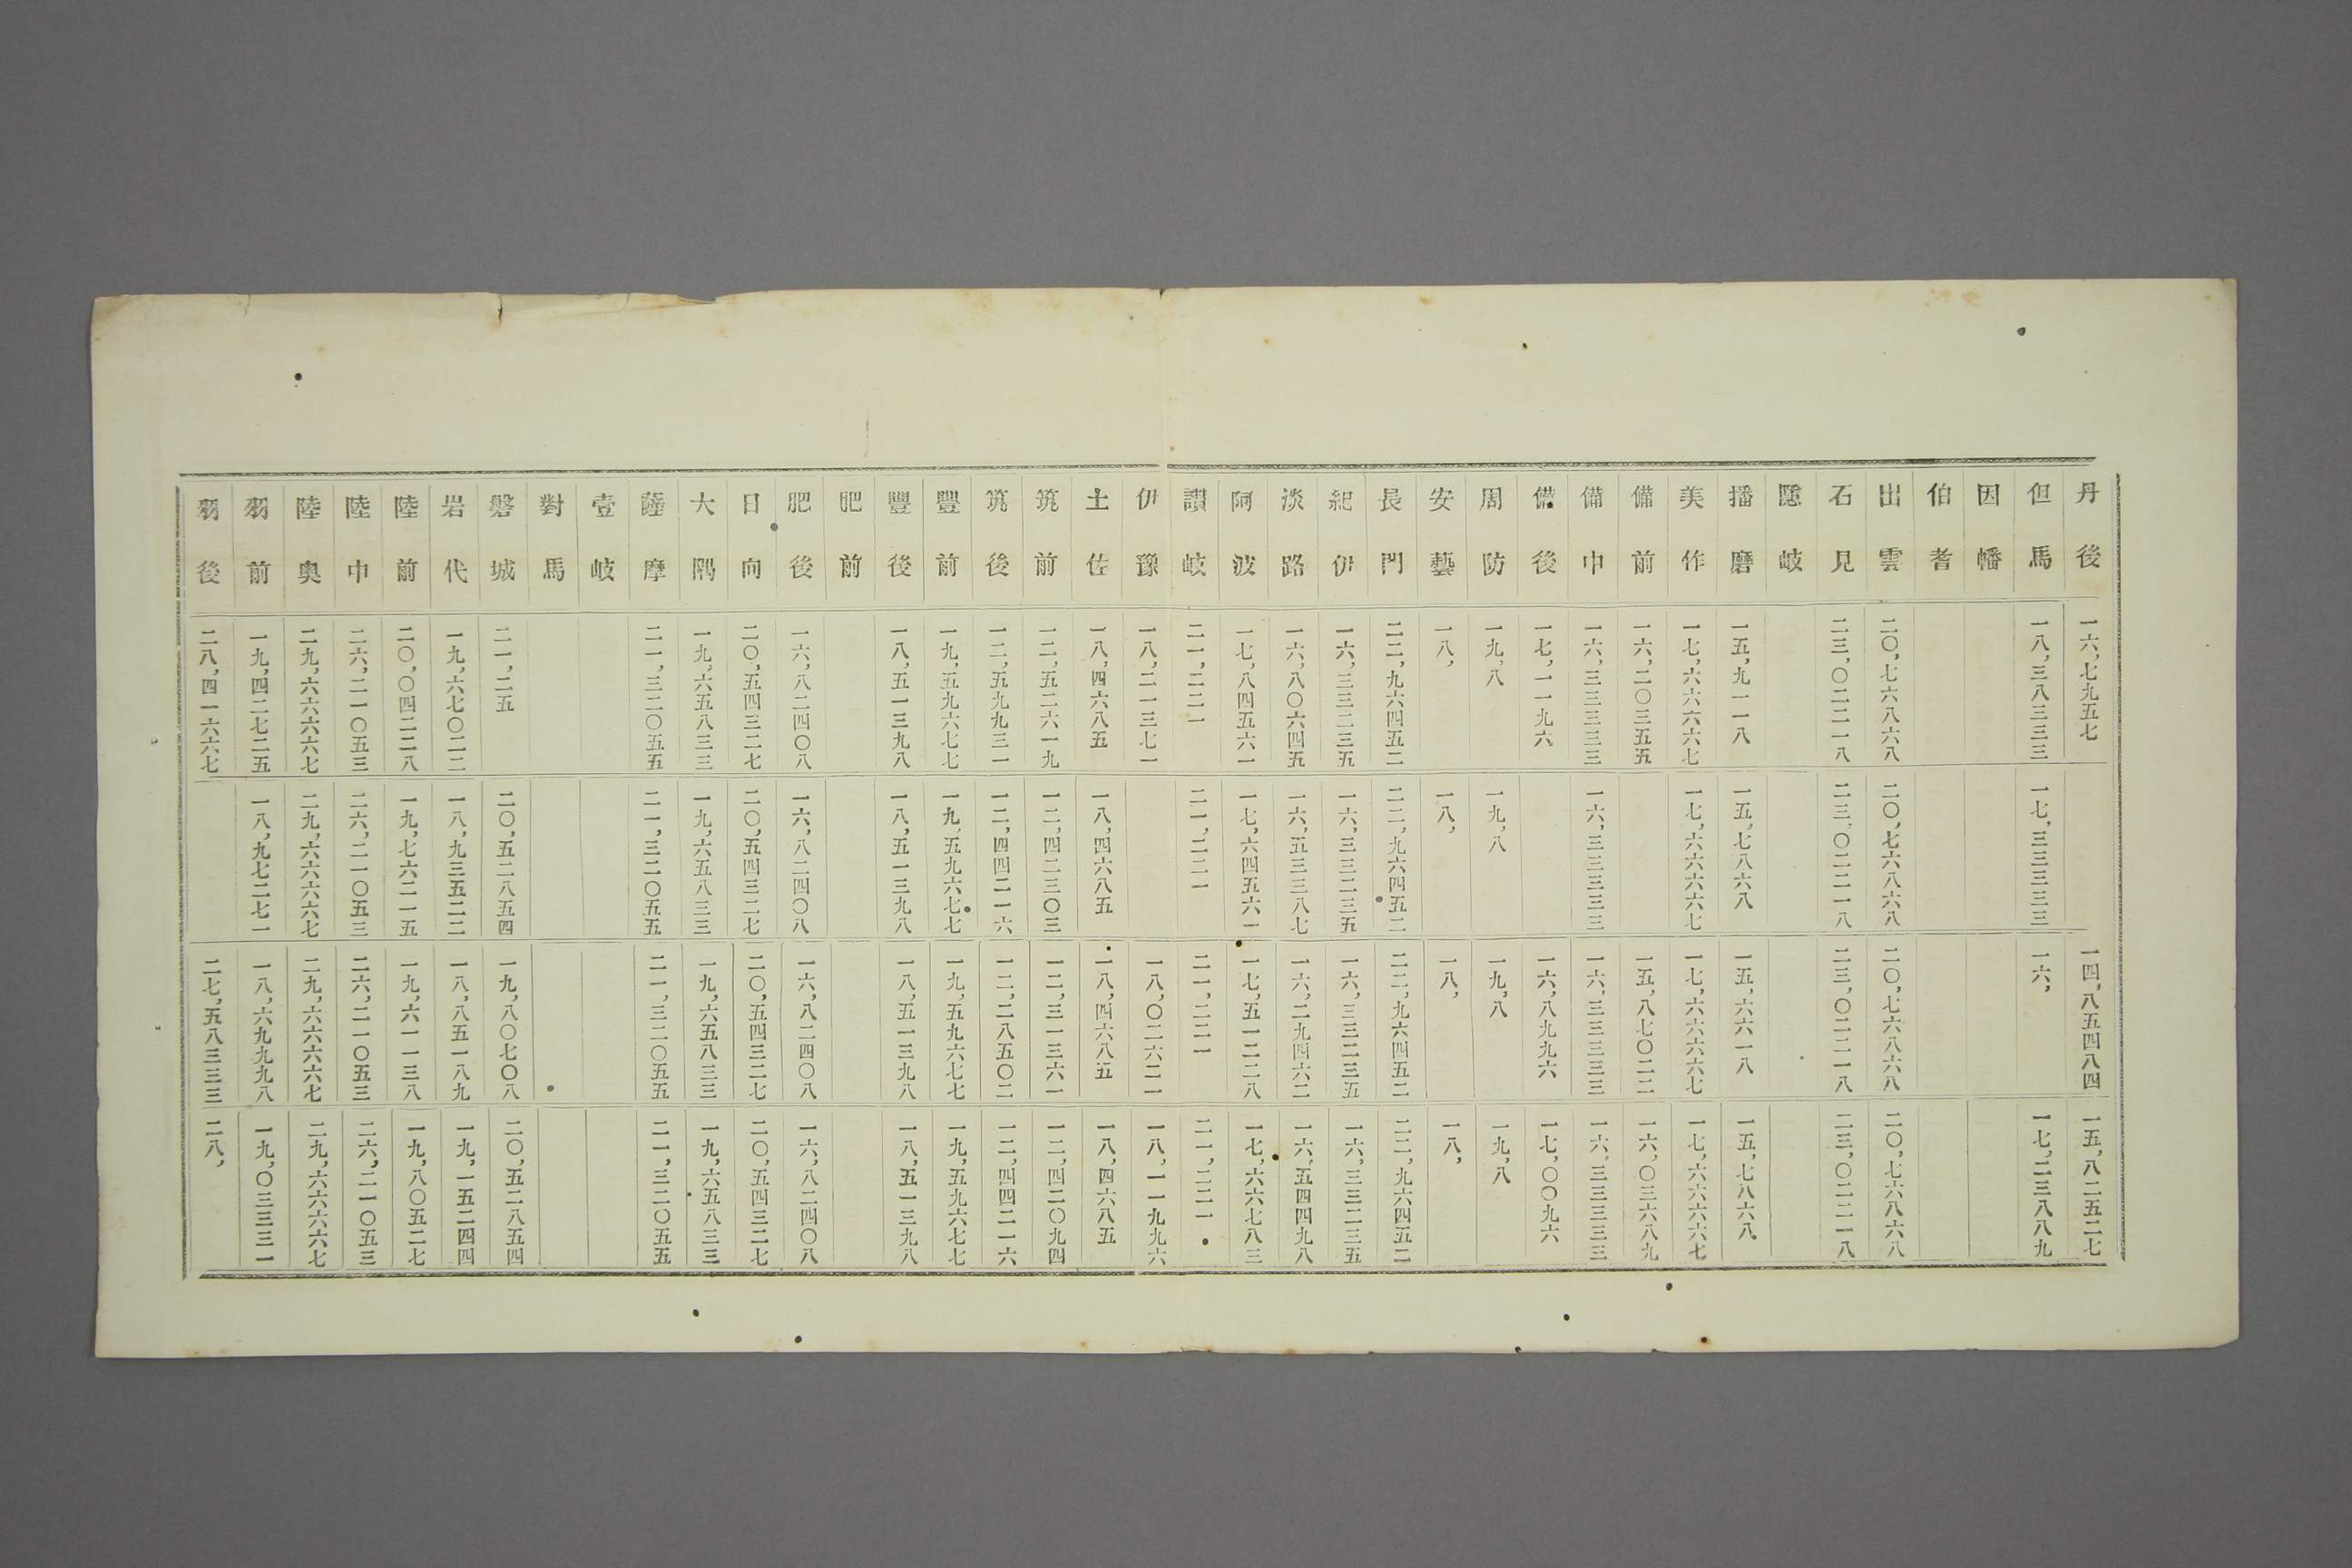 丹後 一六,七九五七 一四,八五四八四 一五,八二五二七
但馬 一八,三八三三三 一七,三三三三三 一六, 一七,二三八八九
因幡
伯耆
出雲 二〇,七六八六八 二〇,七六八六八 二〇,七六八六八 二〇,七六八六八
石見 二三,〇二二一八 二三,〇二二一八 二三,〇二二一八 二三,〇二二一八
隱岐
播磨 一五,九一一八 一五,七八六八 一五,六六一八 一五,七八六八
美作 一七,六六六六七 一七,六六六六七 一七,六六六六七 一七,六六六六七
備前 一六,二〇三五五 一五,八七〇二二 一六,〇三六八九
備中 一六,三三三三三 一六,三三三三三 一六,三三三三三 一六,三三三三三
備後 一七,一一九六 一六,八九九六 一七,〇〇九六
周防 一九,八 一九,八 一九,八 一九,八
安藝 一八, 一八, 一八, 一八,
長門 二二,九六四五二 二二,九六四五二 二二,九六四五二 二二,九六四五二
紀伊 一六,三三二三五 一六,三三二三五 一六,三三二三五 一六,三三二三五
淡路 一六,八〇六四五 一六,五三三八七 一六,二九四六二 一六,五四四九八
阿波 一七,八四五六一 一七,六四五六一 一七,五一二二八 一七,六六七八三
讃岐 二一,二二一 二一,二二一 二一,二二一 二一,二二一
伊豫 一八,二一三七一 一八,〇二六二一 一八,一一九九六
土佐 一八,四六八五 一八,四六八五 一八,四六八五 一八,四六八五
筑前 一二,五二六一九 一二,四二三〇三 一二,三一三六一 一二,四二〇九四
筑後 一二,五九九三一 一二,四四二一六 一二,二八五〇二 一二,四四二一六
豐前 一九,五九六七七 一九,五九六七七 一九,五九六七七 一九,五九六七七
豐後 一八,五一三九八 一八,五一三九八 一八,五一三九八 一八,五一三九八
肥前
肥後 一六,八二四〇八 一六,八二四〇八 一六,八二四〇八 一六,八二四〇八
日向 二〇,五四三二七 二〇,五四三二七 二〇,五四三二七 二〇,五四三二七
大隅 一九,六五八三三 一九,六五八三三 一九,六五八三三 一九,六五八三三
薩摩 二一,三二〇五五 二一,三二〇五五 二一,三二〇五五 二一,三二〇五五
壹岐
對馬
磐城 二一,二五 二〇,五二八五四 一九,八〇七〇八 二〇,五二八五四
岩代 一九,六七〇二二 一八,九三五二二 一八,八五一八九 一九,一五二四四
陸前 二〇,〇四二二八 一九,七六二一五 一九,六一一三八 一九,八〇五二七
陸中 二六,二一〇五三 二六,二一〇五三 二六,二一〇五三 二六,二一〇五三
陸奥 二九,六六六六七 二九,六六六六七 二九,六六六六七 二九,六六六六七
羽前 一九,四二七二五 一八,九七二七一 一八,六九九九八 一九,〇三三三一
羽後 二八,四一六六七 二七,五八三三三 二八,